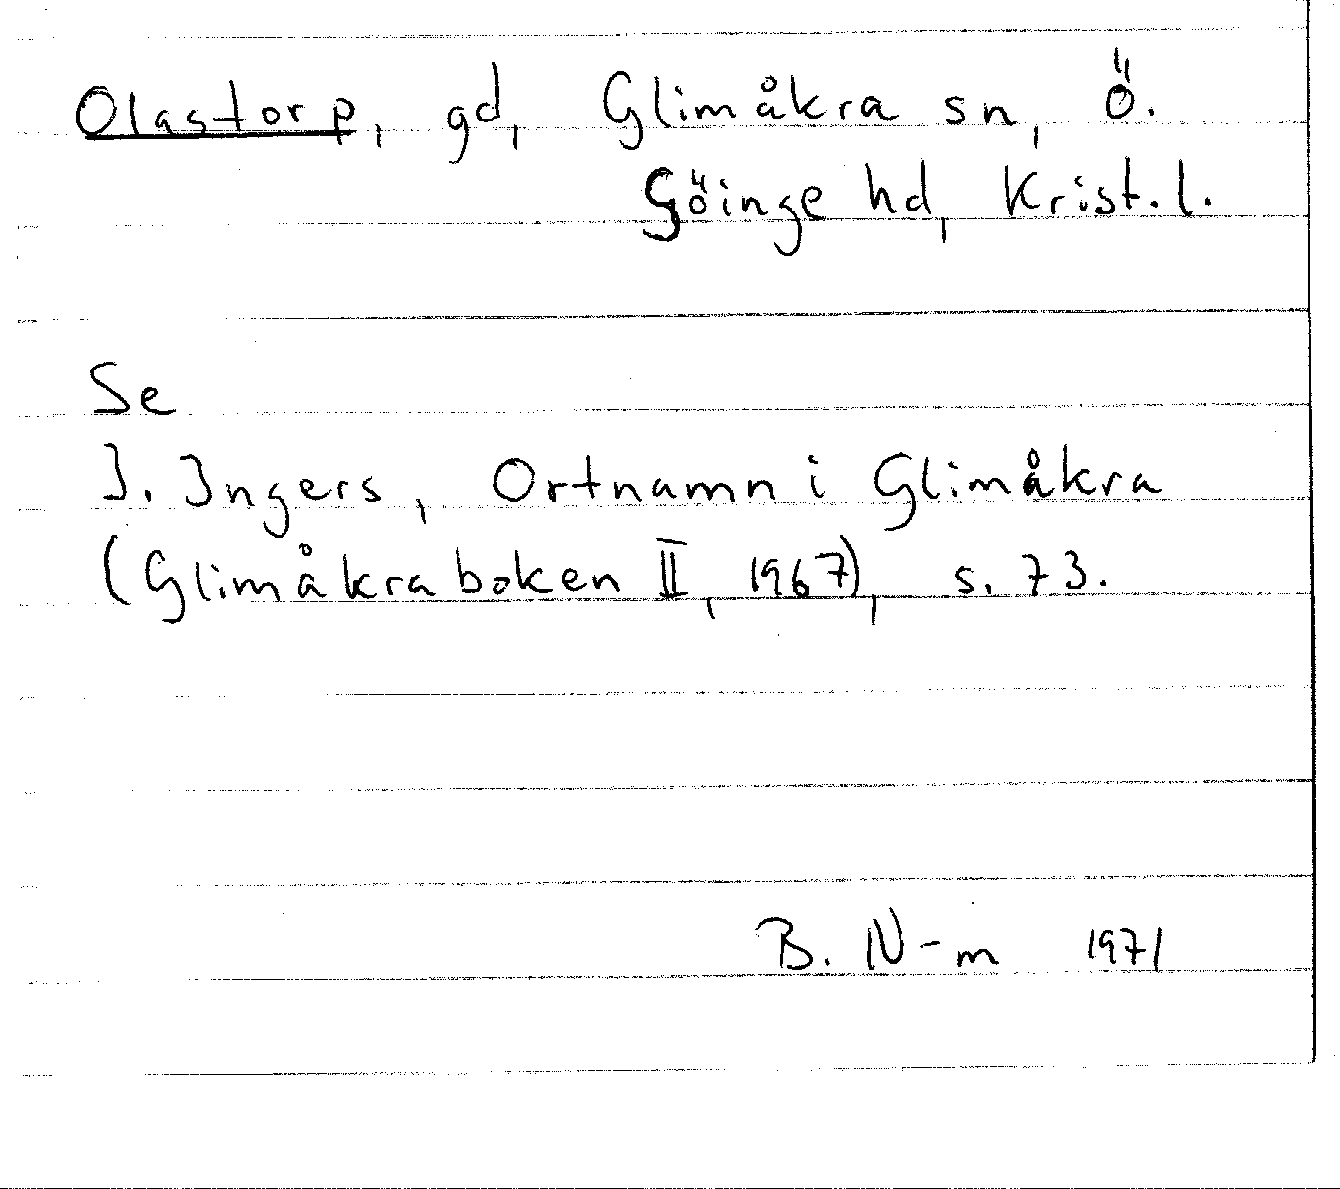 Olastorp, gd, Glimåkra sn, Ö.
Göinge hd, Krist. l.
Se
I. Ingers, Ortnamn i Glimåkra
(Glimåkraboken II, 1967), s. 73.
B. N-m 1971